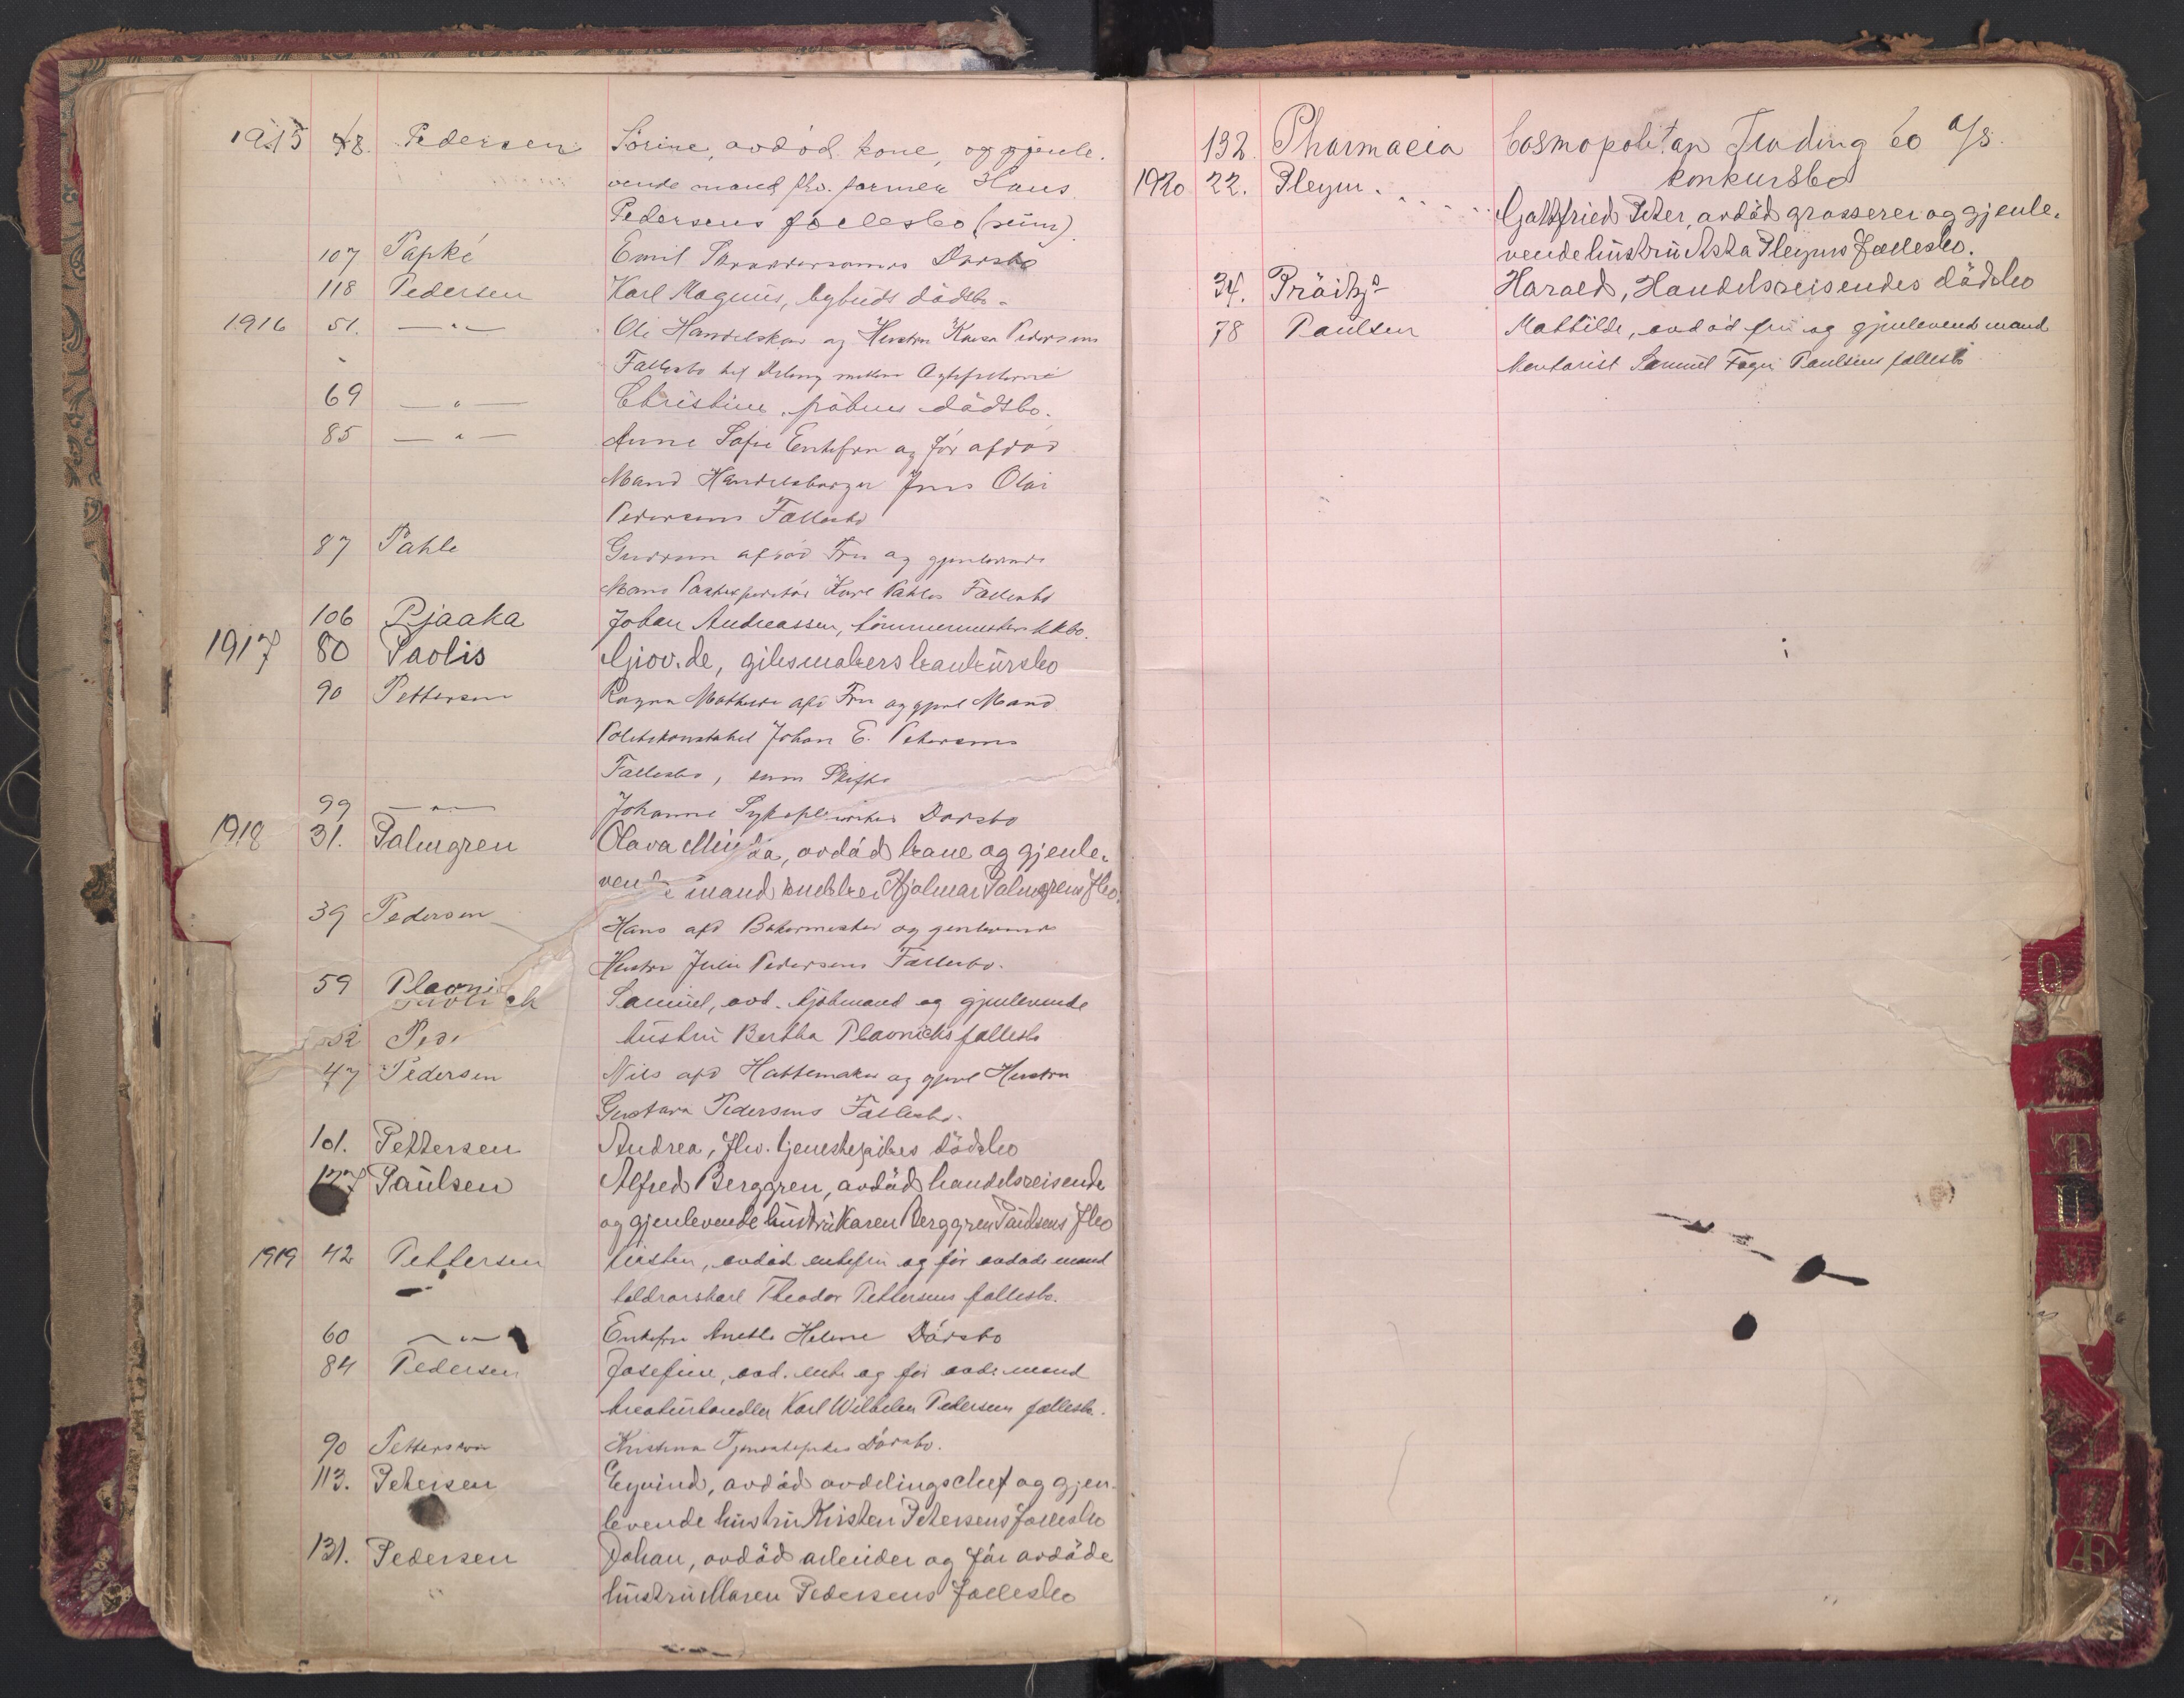 1915 48. Pedersen Sörine, avdöd kone, og gjenle-
vende mand fhv. farmer Hans
Pedersens fællesbo (summ).
107 Papké Emil Skræddersvends Dødsbo
118 Pedersen Karl Magnus, bybuds dödsbo.
1916 51. —"— Ole Handelskar og Hustru Pedersens
Fællesbo
69 —"— Christine, dödsbo.
85 —"— Anne Sofie Enkefru og før afdød
Mand Handelsborger Jens Olai
Pedersens Fællesbo
87 Pahle Gudrun afdød Fru og gjenlevende
Mand Postexpeditør Karl Pahles Fællesbo
106 Pjaaka Johan Andreassen, tömmermesters kkbo.
1917 80 Paolis Giov. de, gibsmakers konkursbo
90 Pettersen Ragna Mathilde afd Fru og gjenl Mand
Politikonstabel Johan E. Petersens
Fællesbo, sum Skifte
99 —"— Johanne Sykepleierskes Dødsbo
1918 31. Palmgren Olava Minda, avdöd kone og gjenle-
vende mand snekker Hjalmar Palmgrens Fbo.
39 Pedersen Hans afd Bakermester og gjenlevende
Hustru Julie Pedersens Fællesbo.
59 Plavnich Samuel, avd. kjöbmand og gjenlevende
hustru Bertha Plavnichs fællesbo
52 Ped
47 Pedersen Nils afd Hattemaker og gjenl Hustru
Gustava Pedersens Fællesbo.
101. Pettersen Andrea, fhv. tjenestepikes dödsbo
127 Paulsen Alfred Berggren, avdöd handelsreisende
og gjenlevende hustru Karen Berggren Paulsens Fbo
1919 42 Pettersen avdöd enkefru og før avdöde mand
Theodor Pettersens fællesbo.
60 —"— Enkefru Anette Helene Dødsbo
84 Pedersen Josefine, avd. enke og før avde mand
kreaturhandler Karl Wilhelm Pedersens fællesbo.
90 Pettersen Kristina Tjenestepikes Dødsbo.
113. Petersen Eyvind, avdöd avdelingschef og gjen-
levende hustru Kirsten Petersens fællesbo
131. Pedersen Johan, avdöd arbeider og før avdöde
hustru Maren Pedersens fællesbo
132. Pharmacia Cosmopolitan Trading Co a/s.
konkursbo
1920 22. Pleym Gottfried Peter, avdöd grosserer og gjenle-
vende hustru Asta Pleyms fællesbo.
34. Harald, Handelsreisendes dödsbo
78 Paulsen Mathilde, avdöd fru og gjenlevende mand
kontorist Samuel Paulsens fællesbo
Q
S
T
U
V
Z
Æ